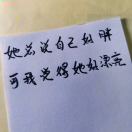 她总说自己好胖
可我觉得她好漂亮